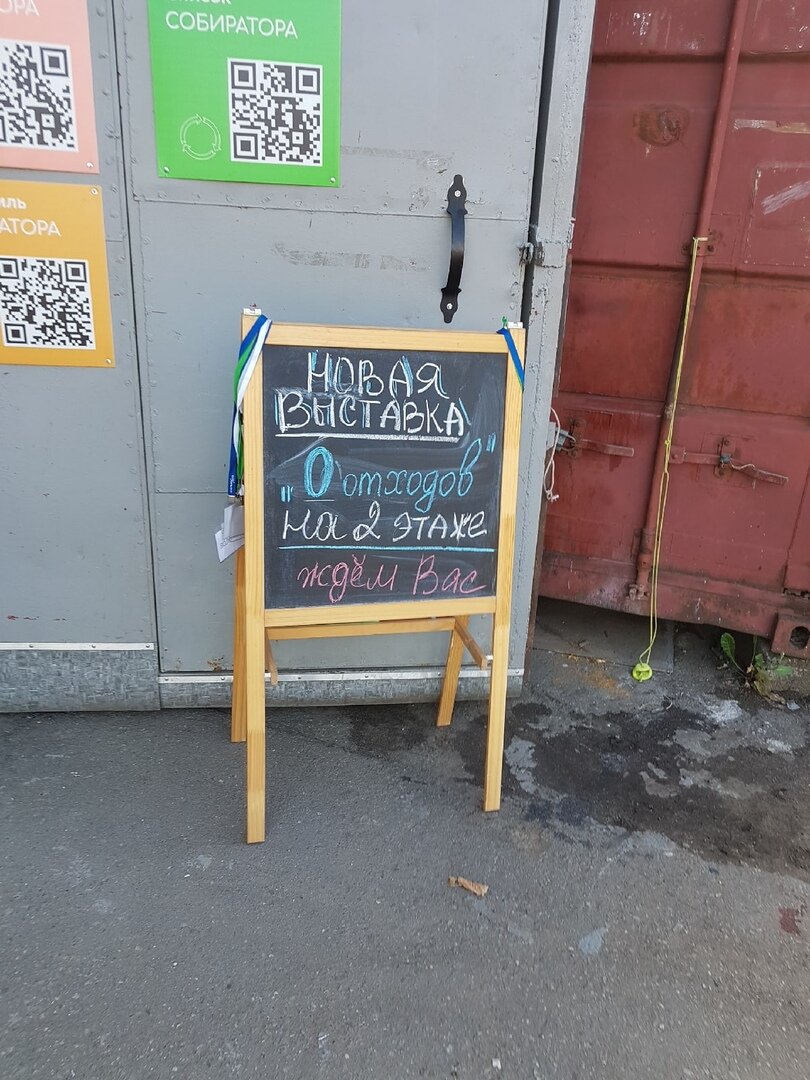 ОРА
СОБИРАТОРА
АТОРА
НОВАЯ
ВЫСТАВКА
"0 отходов"
на 2 этаже
ждём Вас